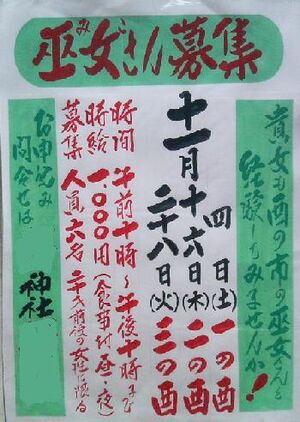 巫女さん募集
みこ
貴女も酉の市の巫女さんを
経験してみませんか!
十一月 四日(土) 一の酉
十六日(木) 二の酉
二十八日(火) 三の酉
時間 午前十時〜午後十時まで
時給 一、〇〇〇円(食事付 昼・夜)
募集人員 六名 二十才前後の女性に限る
お申込み
問合せは
神社